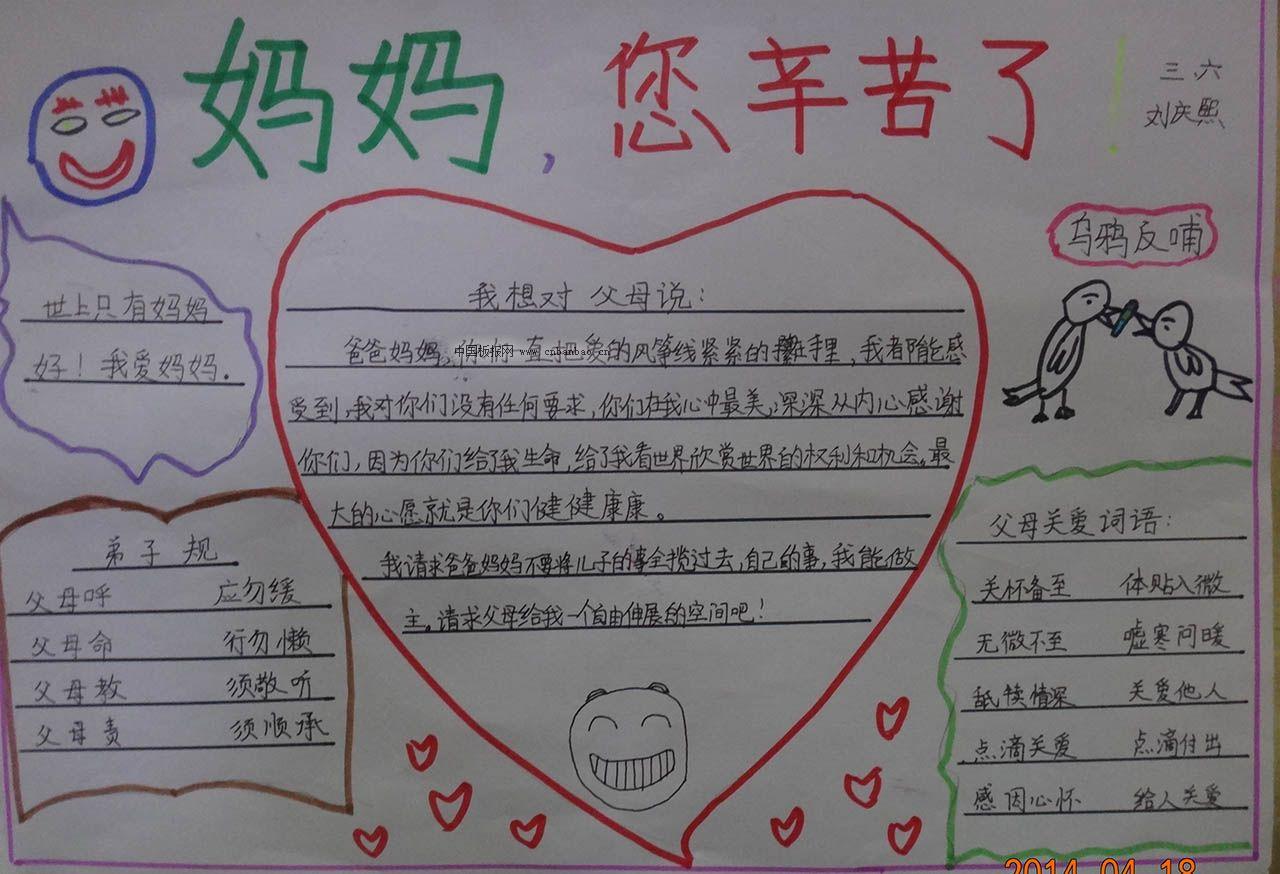 妈妈,您辛苦了
三.六
刘庆熙
世上只有妈妈
好!我爱妈妈.
乌鸦反哺
我想对父母说:
爸爸妈妈,你们一直把爱的风筝线紧紧的攥手里,我都能感
受到,我对你们没有任何要求,你们在我心中最美,深深从内心感谢
你们,因为你们给了我生命,给了我看世界欣赏世界的权利和机会。最
大的心愿就是你们健健康康。
我请求爸爸妈妈不要将儿子的事全揽过去,自己的事,我能做
主。请求父母给我一个自由伸展的空间吧!
中国板报网 www.cnbanbao.cn
弟子规
父母呼 应勿缓
父母命 行勿懒
父母教 须敬听
父母责 须顺承
父母关爱词语:
关怀备至 体贴入微
无微不至 嘘寒问暖
舐犊情深 关爱他人
点滴关爱 点滴付出
感因心怀 给人关爱
2014.04.18